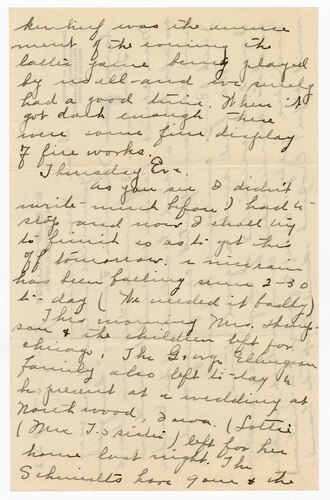 was the amuse
ment of the evening the
latter game being played
by us all - and we surely
had a good time. When it
got dark enough there
were some fine display
of fire works.
Thursday Eve.
As you see I didn't
write much before I had to
stop and now I shall try
to finish so as to get this
off tomorrow. a nice rain
has been falling since 2-30
to-day (We needed it badly)
This morning Mrs.
& the children left for
Chicago. The George
family also left to-day to
be present at a wedding at
Northwood, Iowa. (Lottie
(Mrs T.'s sister) left for her
home last night. The
Schmidts have gone & the